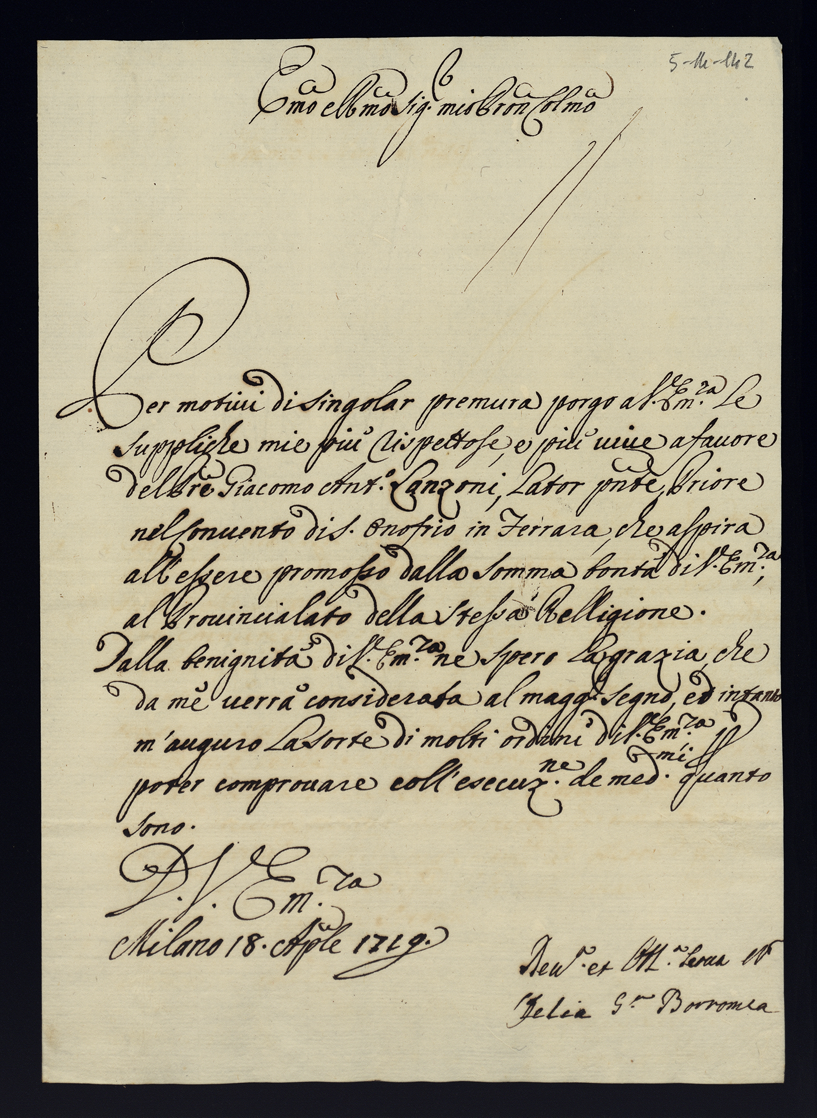 5-14-142
Emo e Rmo Sig.r mio Pron Colmo
Per motiui di singolar premura porgo a V. Em.za le
suppliche mie più rispettose, e più uiue a fauore
del Pre Giacomo Ant.o Lanzoni, Lator pnte, Priore
nel Conuento di S. Onofrio in Ferrara, che aspira
all'essere promosso dalla somma bontà di V. Em.za,
al Prouincialato della stessa Relligione.
Dalla benignità di V. Em.za ne spero la grazia, che
da mè uerrà considerata al magg.r segno, ed intanto
m'auguro la sorte di molti ordini di V. Em.za p
poter comprouare coll'esecuz.ne de med.mi quanto
sono.
D. V. Em.za
Milano 18. Aple 1719.
Deu.ma et Obl.ma Serua V
Clelia G.n Borromea